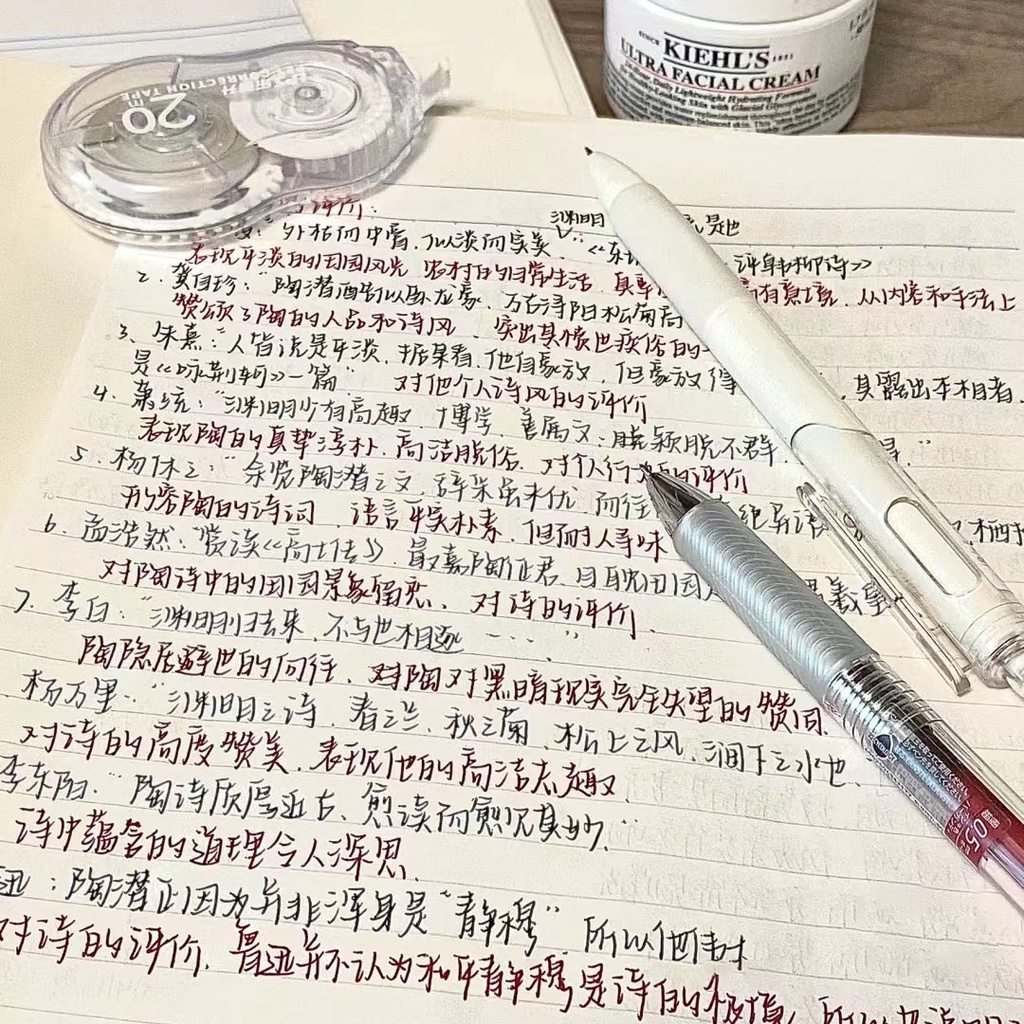 KIEHL'S
SINCE 1851
ULTRA FACIAL CREAM
20m
CORRECTION TAPE
评价:
渊明 是也
外枯而中膏,似淡而实美 《东 评韩柳诗》
表现平淡的田园风光 农村的日常生活 有意境,从内容和手法上
2. 龚自珍:“陶潜酷似卧龙豪,万古浔阳松菊高
赞颂了陶的人品和诗风 突出其愤世疾俗的一
3、朱熹:“人皆说是平淡,据某看,他自豪放,但豪放得 其露出本相者
是《咏荆轲》一篇” 对他个人诗风的评价
4. 萧统:“渊明少有高趣 博学,善属文;脱颖脱不群,
表现陶的真挚淳朴,高洁脱俗,对个人行 的评价
5. 杨休之:“余览陶潜之文,辞采虽未优,而往 绝异语 栖托
形容陶的诗词,语言平实朴素,但耐人寻味
6. 孟浩然:“赏读《高士传》,最嘉陶征君,目耽田园 羲皇
对陶诗中的田园景象留恋,对诗的评价.
7. 李白:“渊明归去来,不与世相逐 ……”
陶隐居避世的向往,对陶对黑暗现实完全失望的赞同
杨万里:“渊明之诗,春之兰,秋之菊,松上之风,涧下之水也
对诗的高度赞美,表现他的高洁志趣
李东阳:“陶诗质厚近古,愈读而愈见其妙.”
诗中蕴含的道理令人深思.
迅:陶潜正因为并非浑身是“静穆”所以他伟大
对诗的评价,鲁迅并不认为和平静穆是诗的极境,所以
0.5